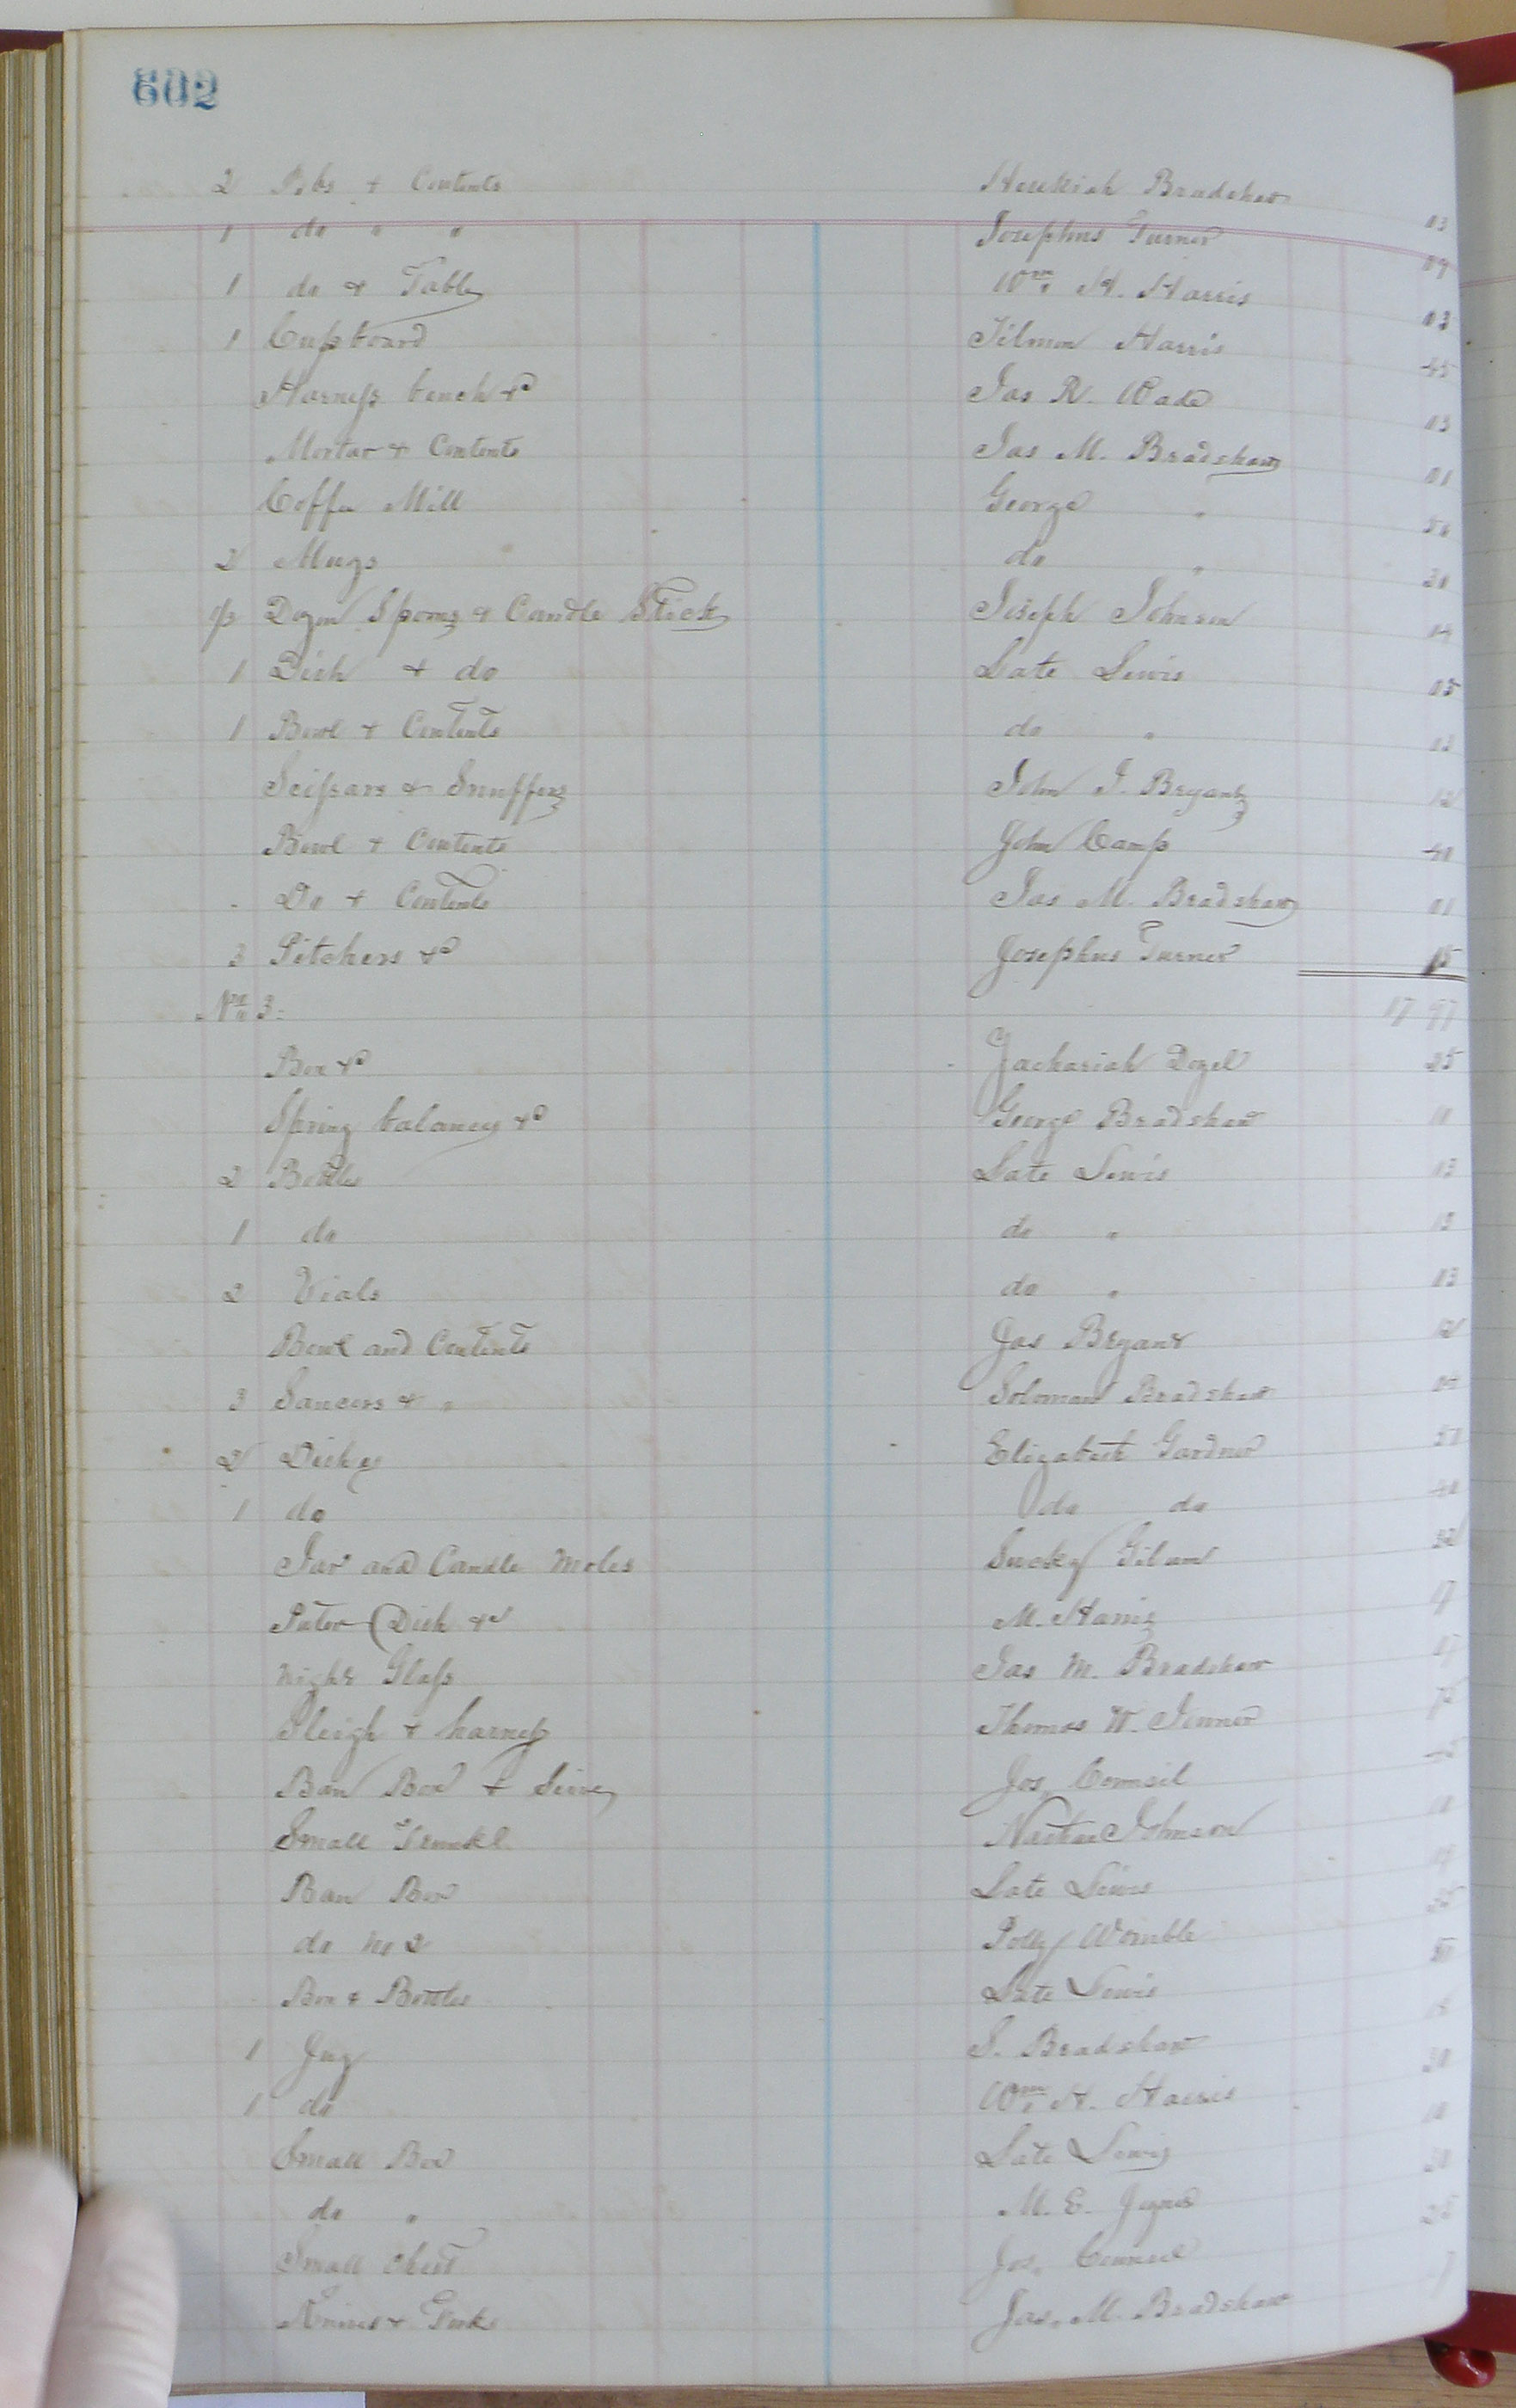 602
2 & Contents Bradshaw 03
1 do " " Josephus Turner 09
1 do & Table Wm. H. Harris 03
1 Cupboard Tilmon Harris 45
Harness bench &c Jas R. Wade 03
Mortar & Contents Jas M. Bradshaw 01
Coffee Mill George " 50
2 Mugs do " 20
½ Dozen Spoons & Candle Stick Joseph Johnson 14
1 Dish & do Late Lewis 05
1 Bowl & Contents do "
Scissors & Snuffers John J. Bryant 12
Bowl & Contents John Camp 40
Do & Contents Jas M. Bradshaw 01
3 Pitchers &c Josephus Turner 15
No 3: 17 97
Box &c Zachariah Dozel 25
Spring balances &c George Bradshaw
2 Bottles Late Lewis 13
1 do do " 13
2 Vials do " 03
Bowl and Contents Jas Bryant 12
3 Saucers & " Solomon Bradshaw 04
2 Dishes Elizabeth Gardner 50
1 do do do 40
Jar and Candle Moles
Puter Dish &c M. Harris
Night Glass Jas M. Bradshaw
Sleigh & harness Thomas W. Joiner
Ban Box & Sieve Jos. Council
Small Trunkl Nathan Johnson
Ban Box Late Lewis
do No 2 Polly Womble
Box & Bottles Late Lewis
1 Jug S. Bradshaw
1 do Wm. H. Harris
Small Box Late Lewis
do " M. E.
Small Chest Jos. Council
Knives & Forks Jas. M. Bradshaw